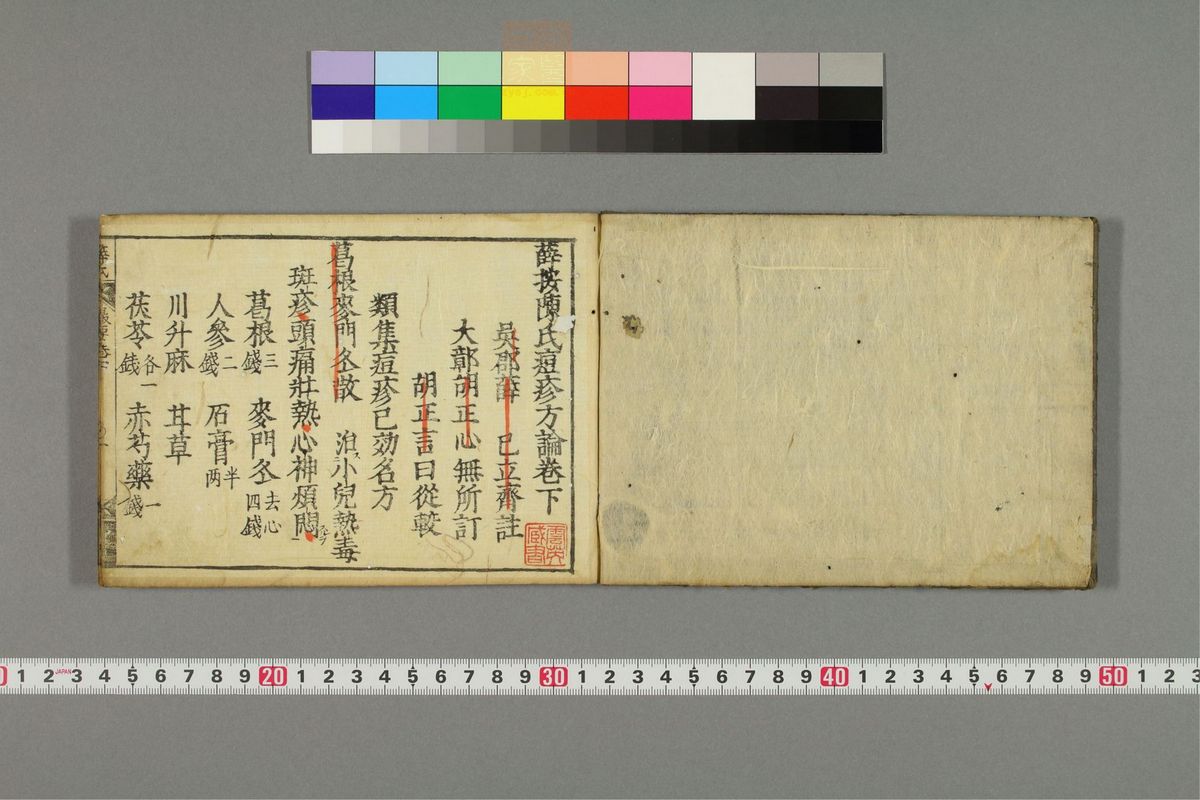 薛按陳氏痘疹方論卷下
吳郡薛 已立齋註
大鄣胡正心無所訂
胡正言曰從較
類集痘疹已効名方
葛根麥門冬散 治小兒熱毒
斑疹頭痛壯熱心神煩悶
葛根三錢 麥門冬去心四錢
人參二錢 石膏半两
川升麻 甘草
茯苓各一錢 赤芍藥一錢
薛氏
雲英
蔵書
家
1 2 3 4 5 6 7 8 9 20 1 2 3 4 5 6 7 8 9 30 1 2 3 4 5 6 7 8 9 40 1 2 3 4 5 6 7 8 9 50 1 2 3
JAPAN